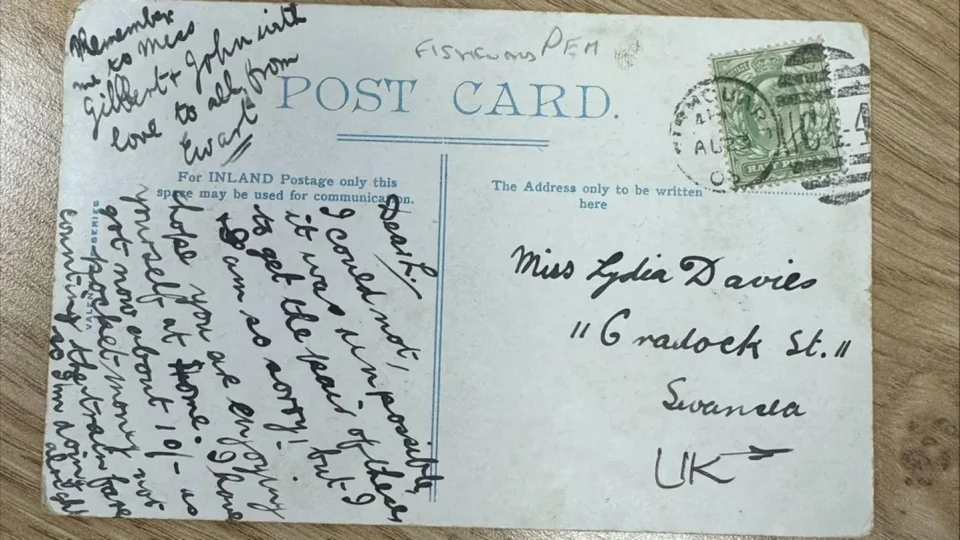 Remember
me to Miss
Gilbert & John with
love to all from
Ewart
FISHGUARD PEM
POST CARD.
For INLAND Postage only this
space may be used for communication.
The Address only to be written
here
AU 23
Dear L.,
I could not,
it was impossible,
to get the pair of these
I am so sorry! but I
hope you are enjoying
yourself at home. I have
got now about 10/- as
pocket-money not
counting the train fare
so I'm doing alright
SERIES
Miss Lydia Davies
"Cradock St."
Swansea
UK